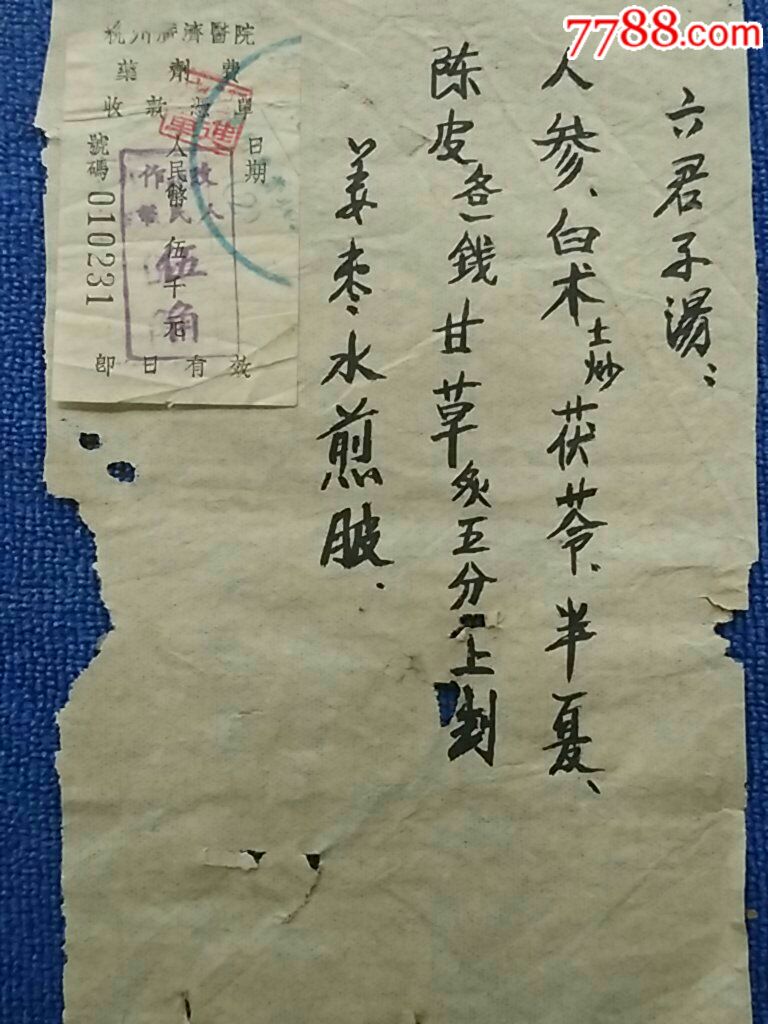 7788.com
六君子湯:
人参、白术土炒茯苓、半夏、
陈皮各一錢甘草炙五分 上剉
姜枣水煎服、
杭州 濟醫院
藥劑費
收款 單
日期
人民幣伍千元
號碼 010231
改作人民幣
伍角
即日有效